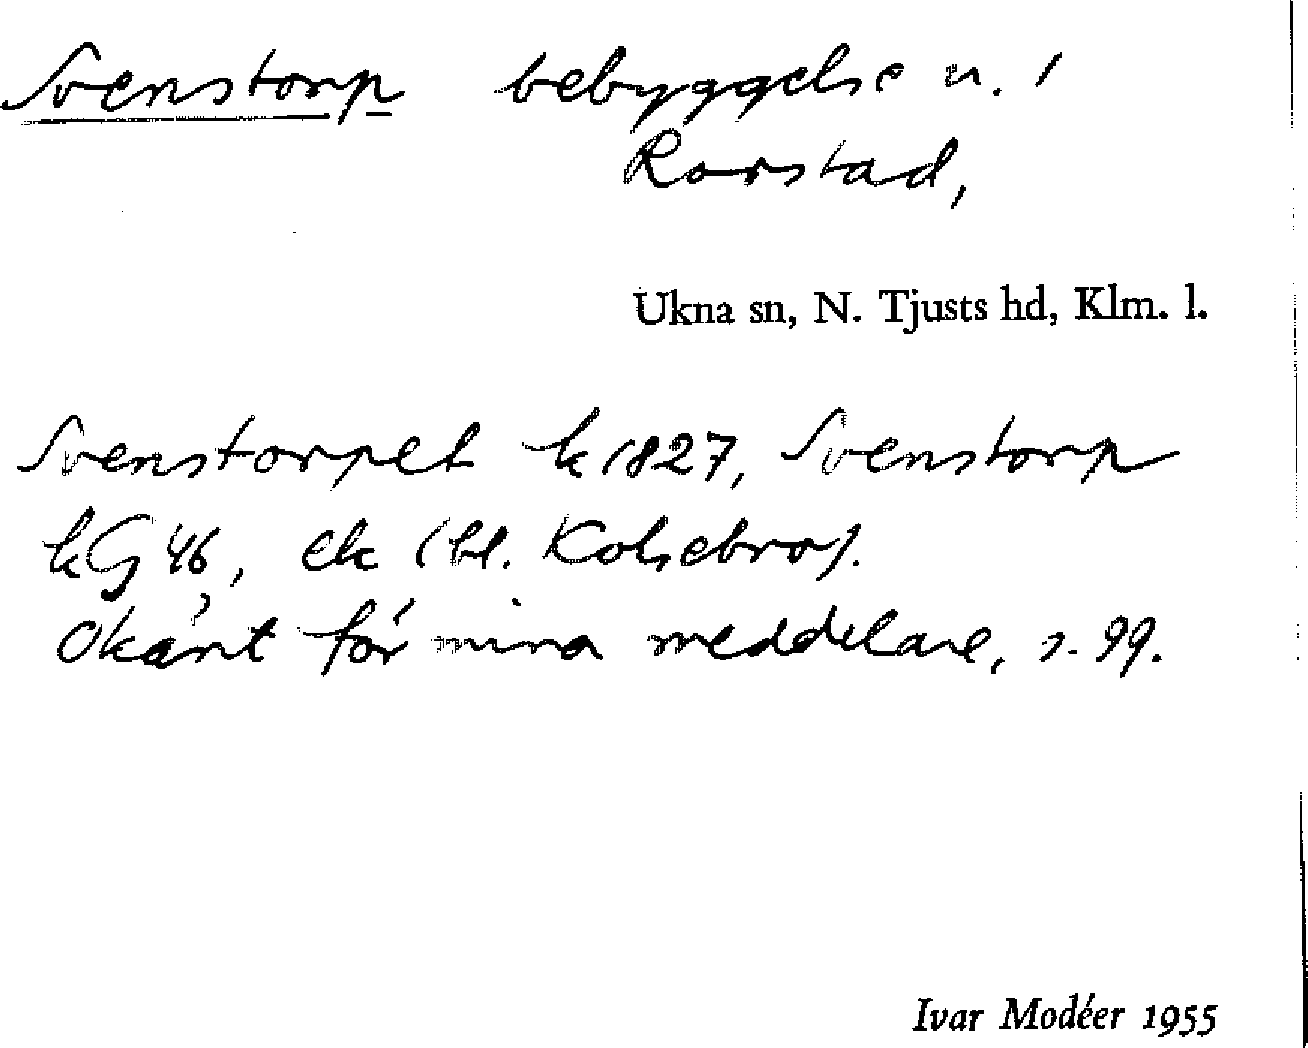 Svenstorp bebyggelse u. 1
Rorstad,
Ukna sn, N. Tjusts hd, Klm. l.
Svenstorpet k 1827, Svenstorp
kG 46, ek (bl. Kolsebro).
Okänt för mina meddelare, s. 99.
Ivar Modéer 1955